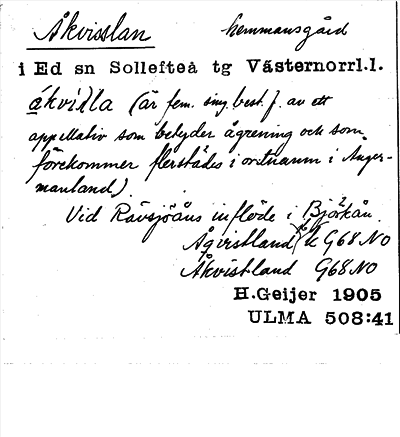 Åkvisslan hemmansgård
i Ed sn Sollefteå tg Västernorrl.l.
ákvißla (är fem. sing. best. f. av ett
appellativ som betyder ågrening och som
förekommer flerstädes i ortnamn i Ånger-
manland).
Vid Rävsjöåns inflöde i Björkån.
Ågvistland k G68NO
Åkvistland G68NO
H.Geijer 1905
ULMA 508:41